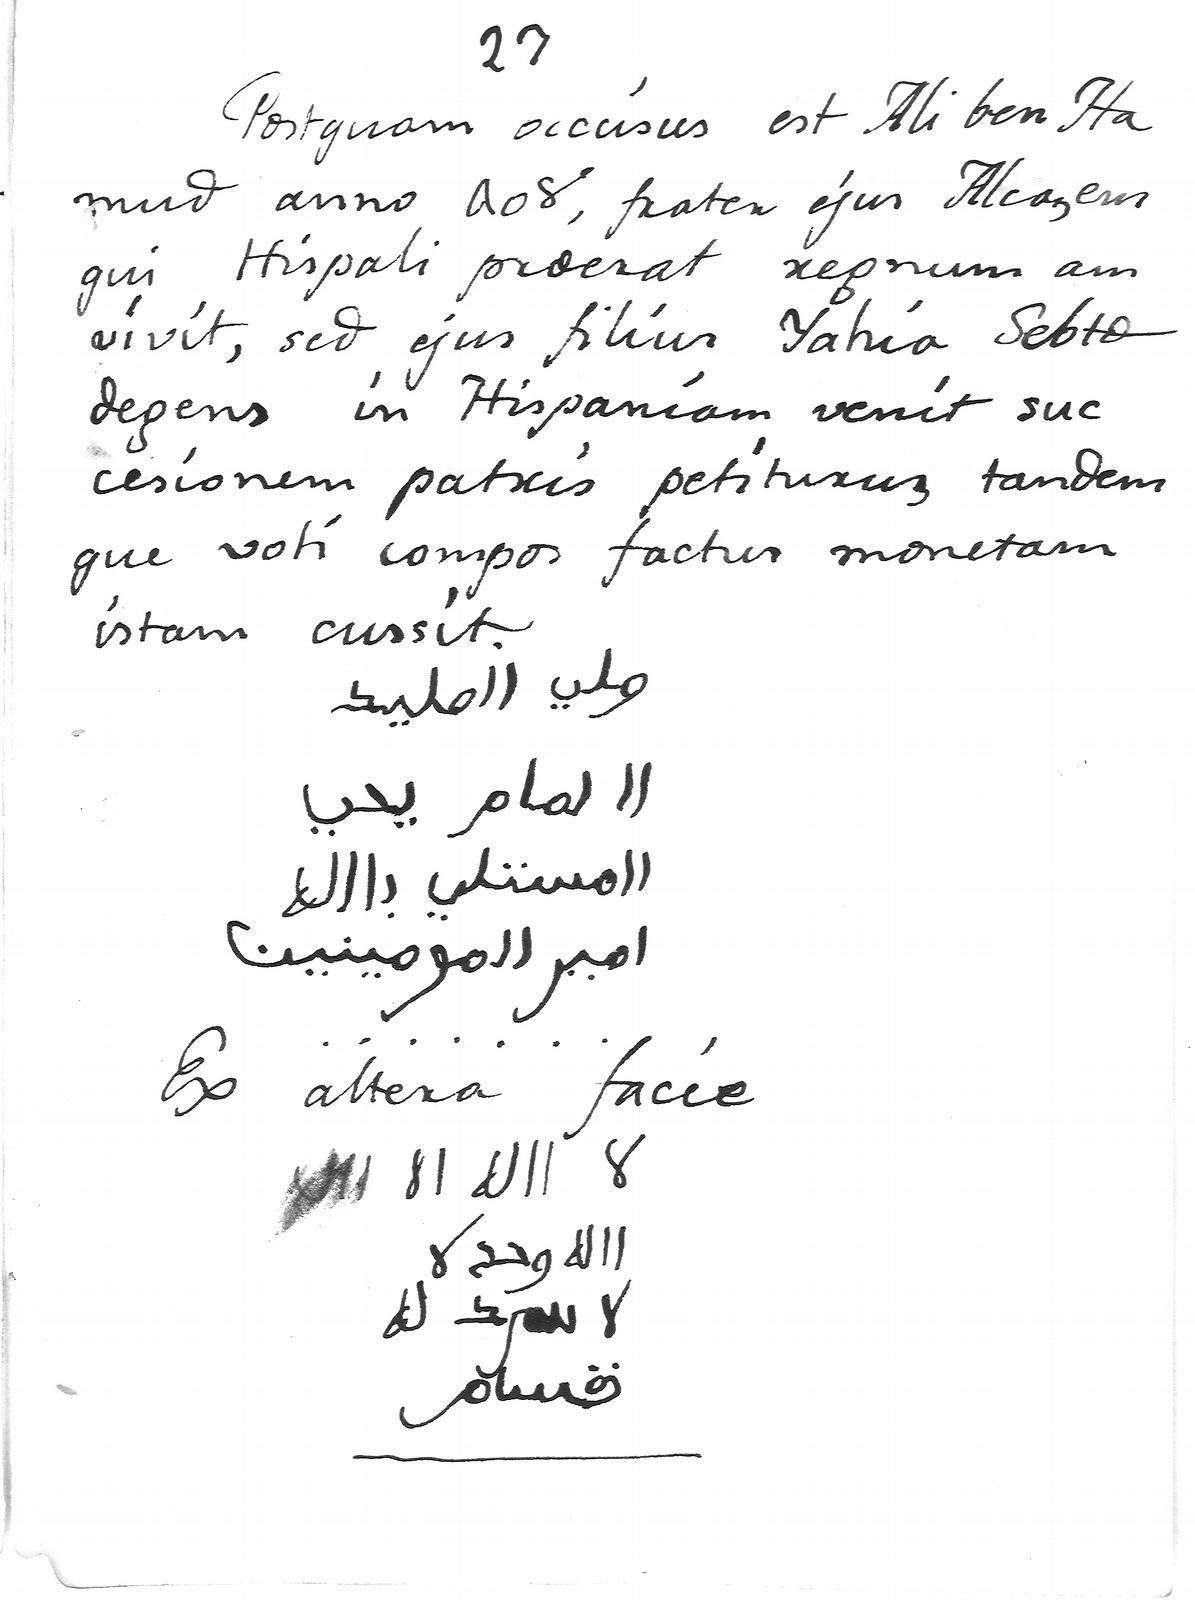 27
Postquam occisus est Ali ben Ha
mud anno 408, frater ejus Alcazem
qui Hispali præerat regnum am
vivit, sed ejus filius Yahia Sebtæ
degens in Hispaniam venit suc
cesionem patris petiturus tandem
que voti compos factus monetam
istam cussit.
ولي
الامام يحيى
المستعلي بالله
امير المومينين
. . . . . . .
Ex altera facie
لا اله الا
الله وحده لا
لا له